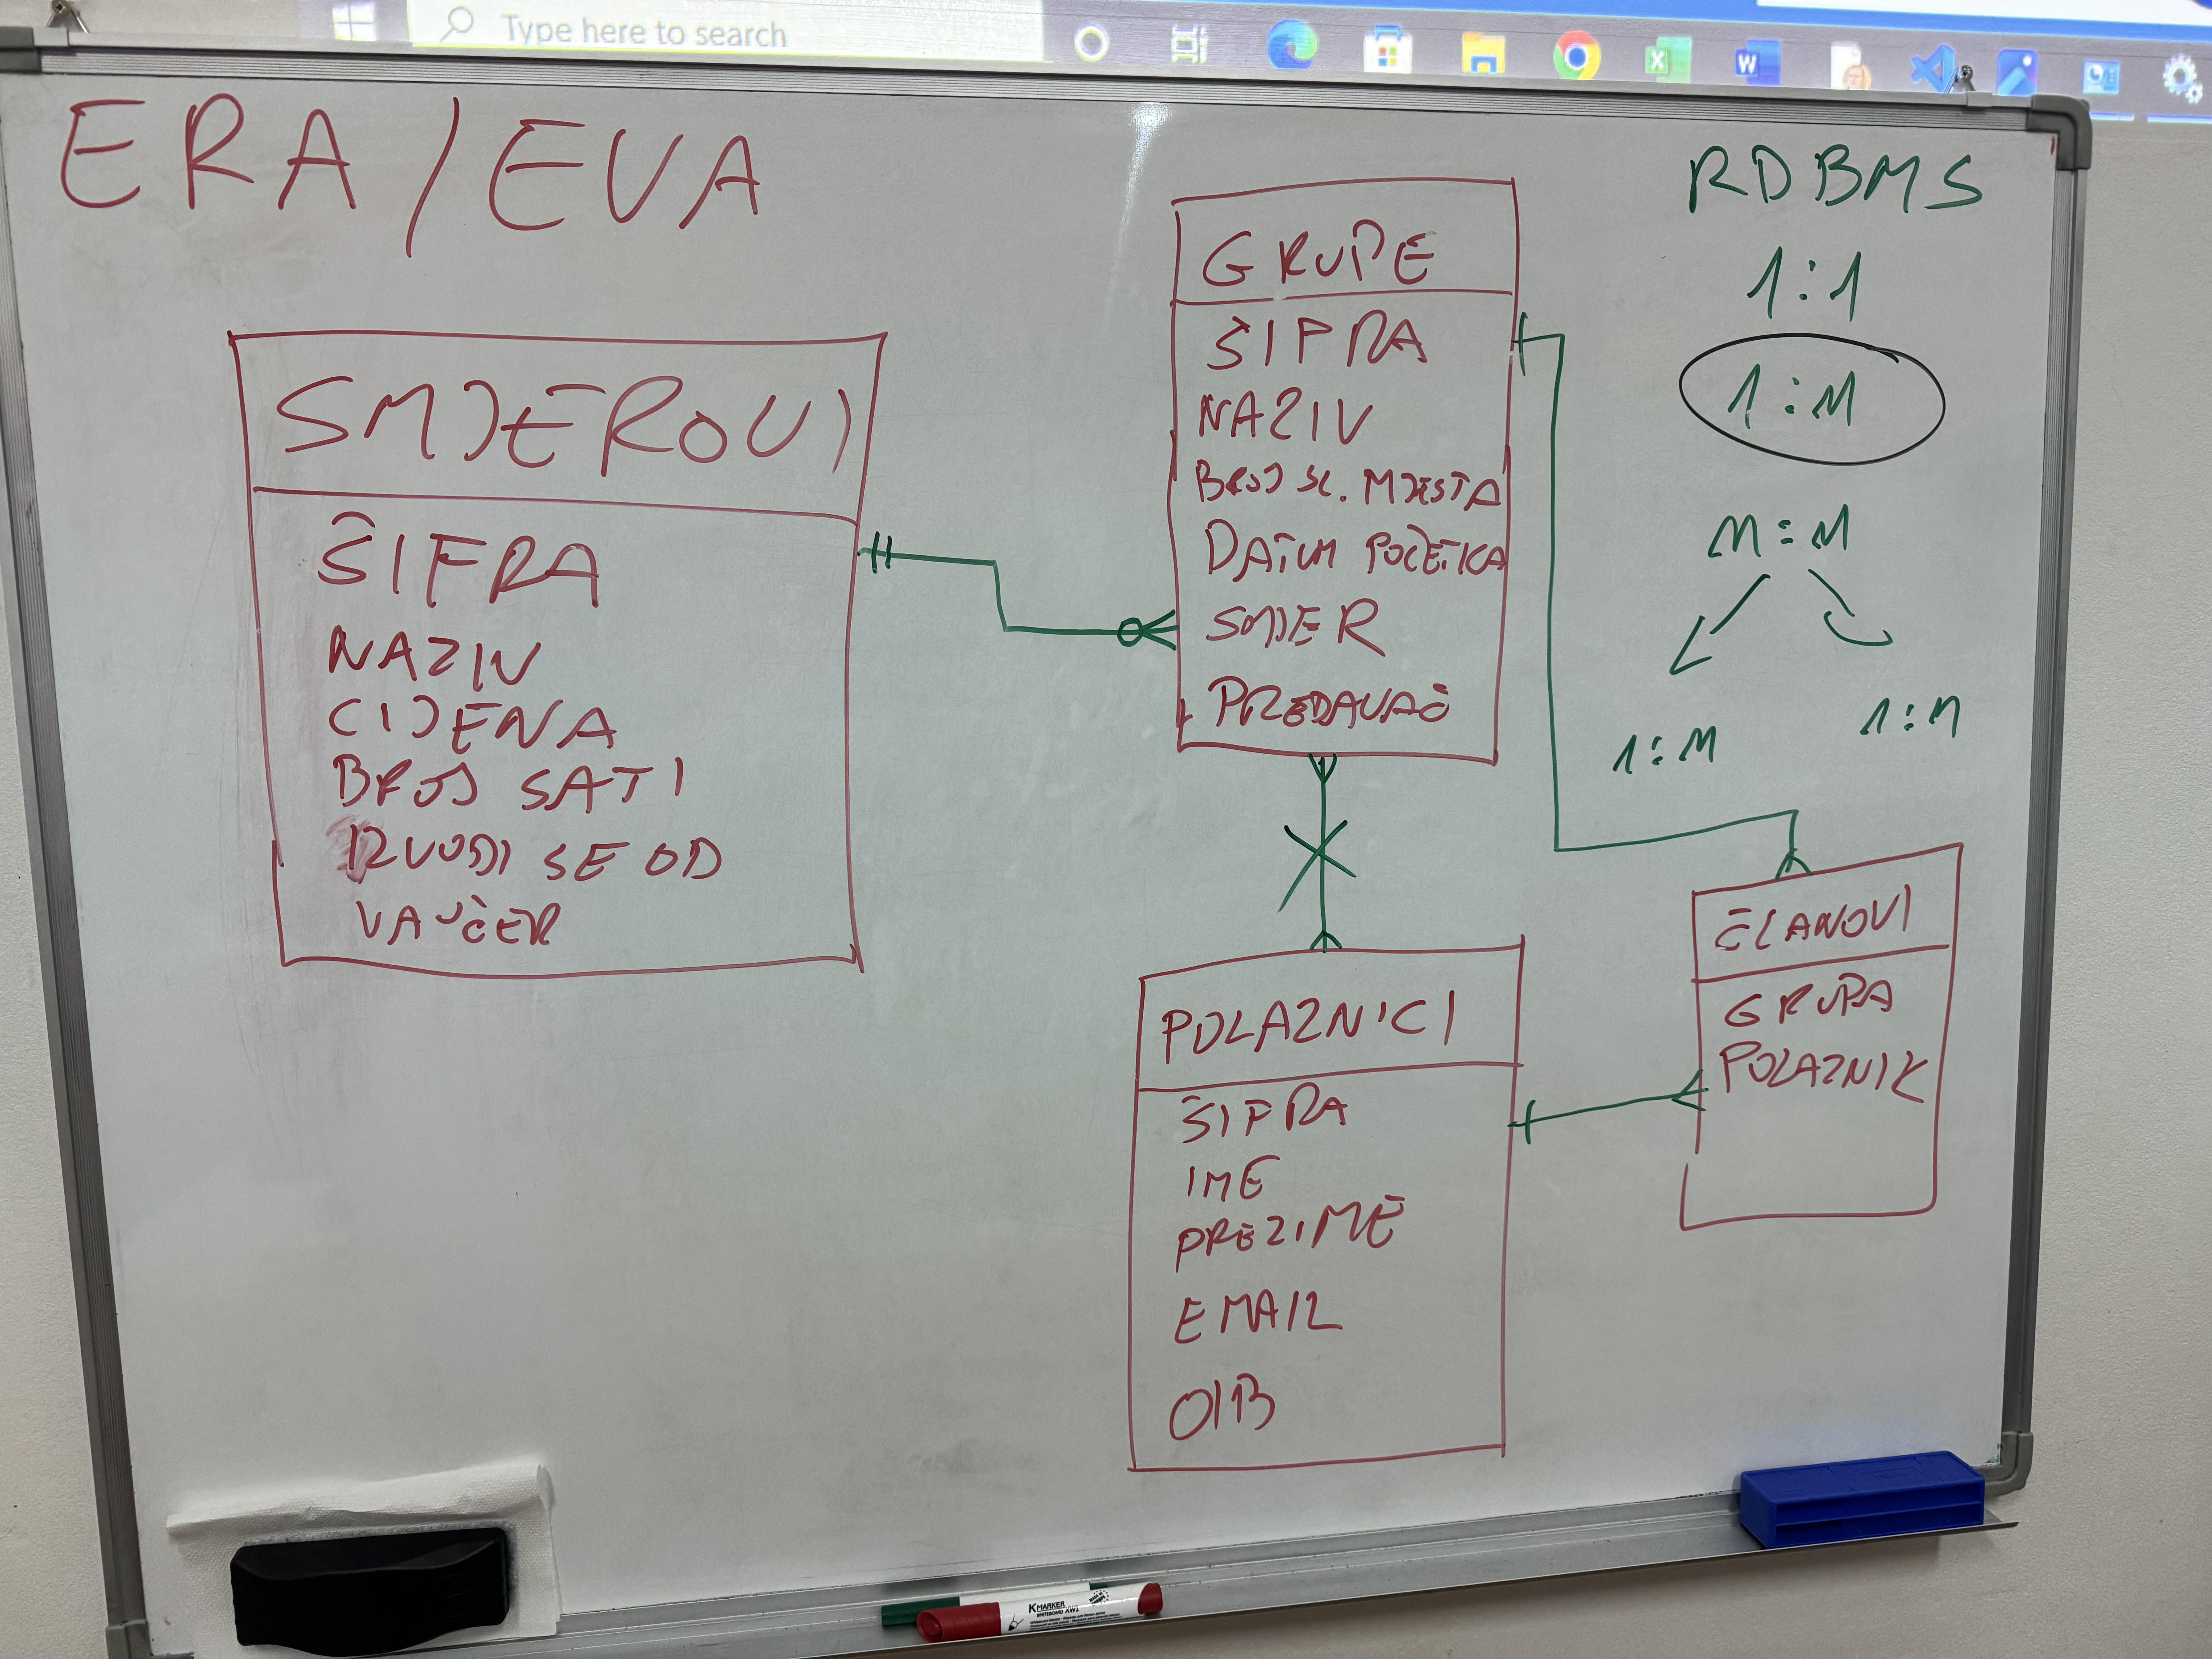 Type here to search
ERA/EVA
SMJEROVI
ŠIFRA
NAZIV
CIJENA
BROJ SATI
IZVODI SE OD
VAUČER
GRUPE
ŠIFRA
NAZIV
BROJ SL. MJESTA
DATUM POČETKA
SMJER
PREDAVAČ
POLAZNICI
ŠIFRA
IME
PREZIME
EMAIL
OIB
RDBMS
1:1
1:M
M:M
1:M
1:M
ČLANOVI
GRUPA
POLAZNIK
K MARKER